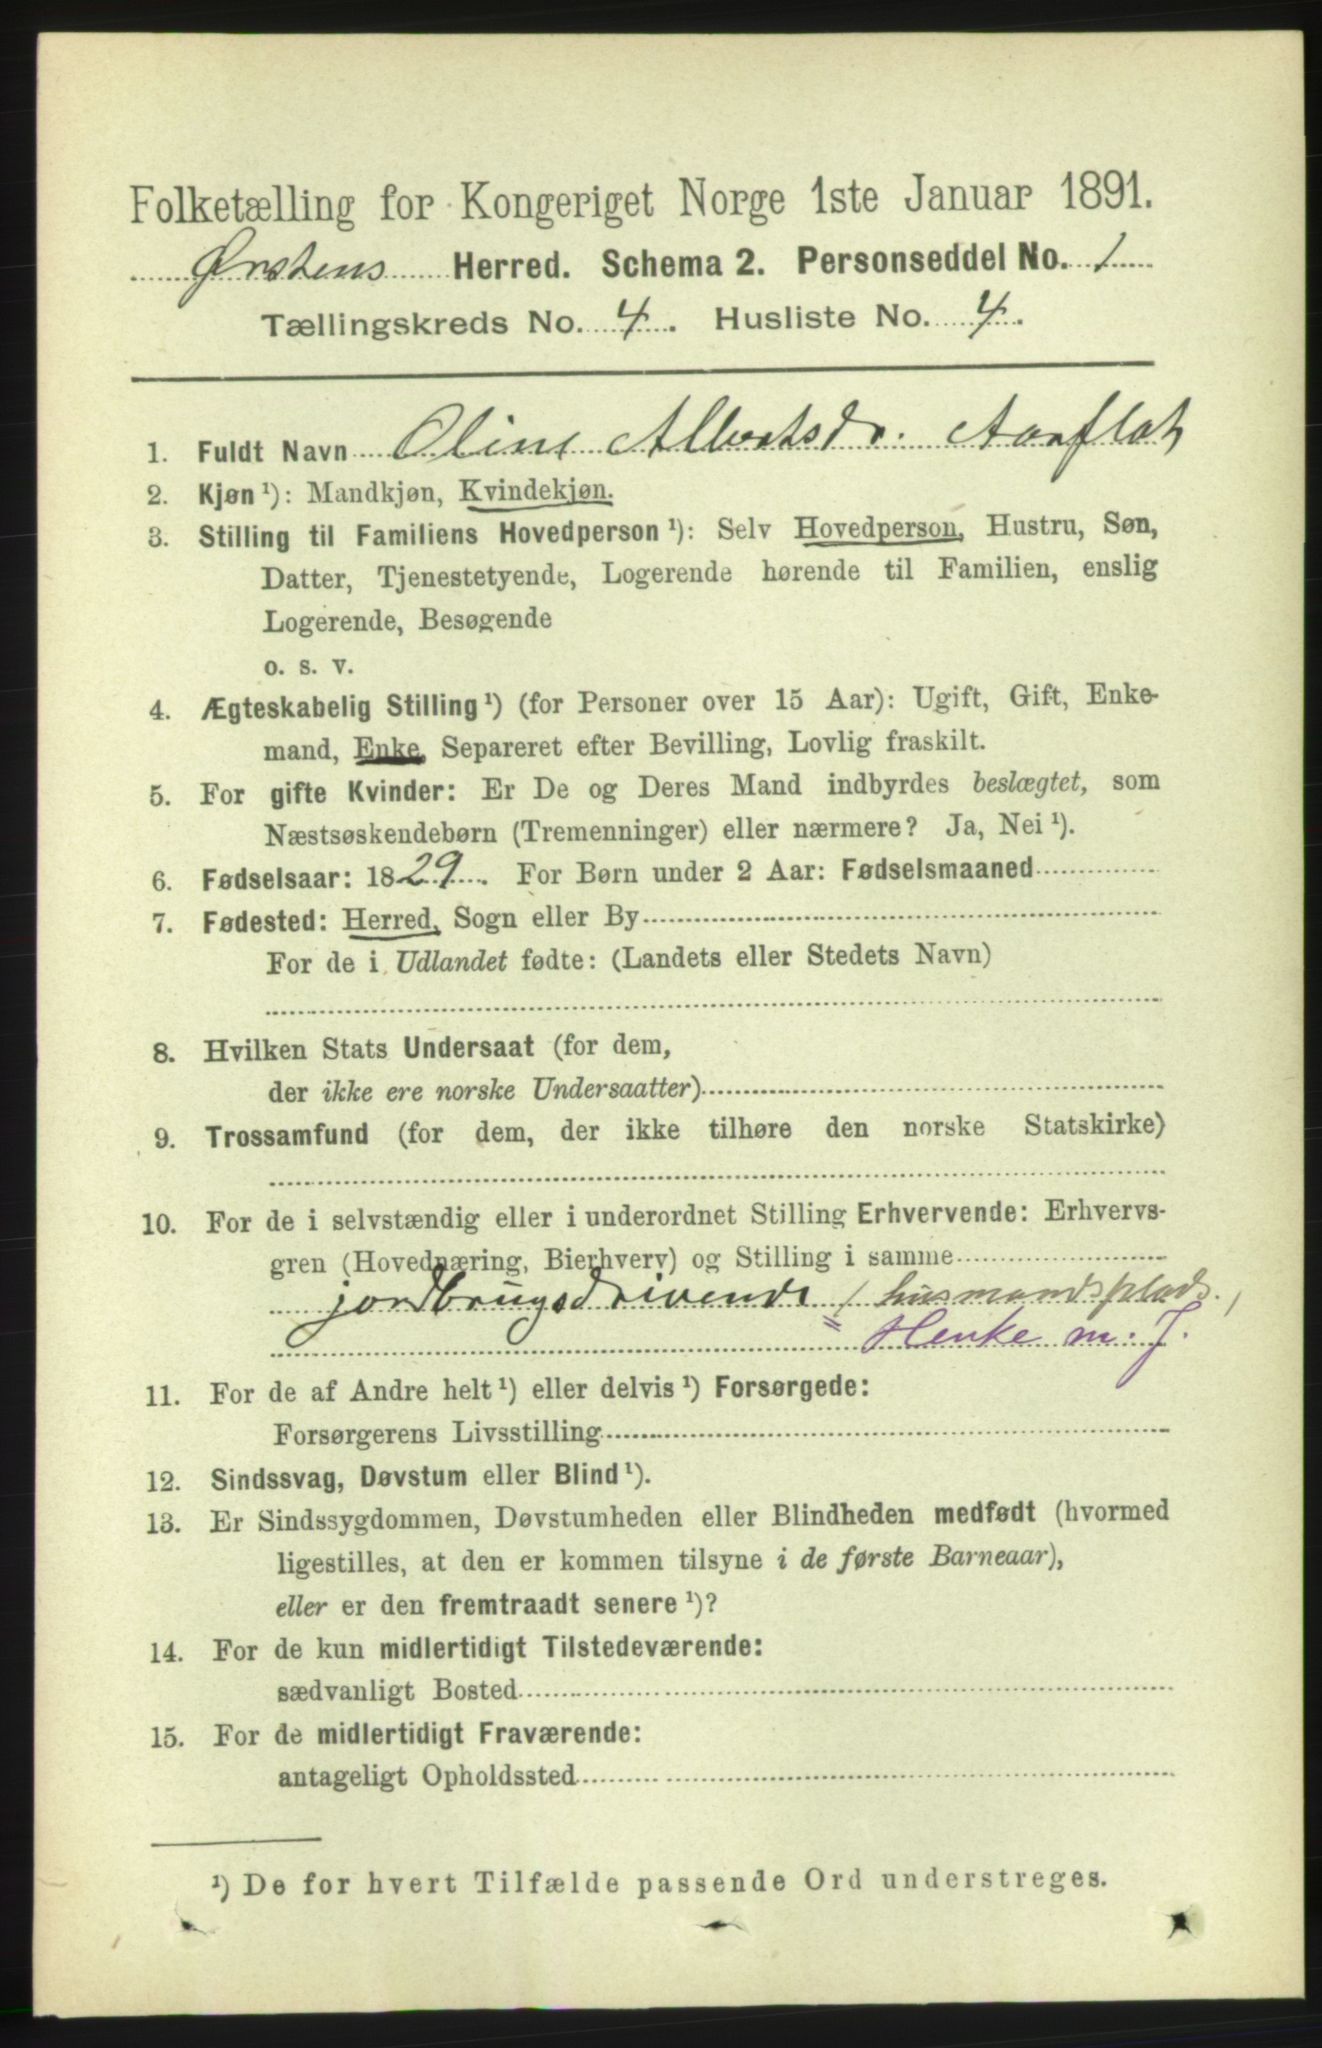 Folketælling for Kongeriget Norge 1ste Januar 1891.
Ørstens Herred. Schema 2. Personseddel No. 1
Tællingskreds No. 4. Husliste No. 4.
1. Fuldt Navn Oline Albertsdr. Aarflot
2. Kjøn ¹): Mandkjøn, Kvindekjøn.
3. Stilling til Familiens Hovedperson ¹): Selv Hovedperson, Hustru, Søn,
Datter, Tjenestetyende, Logerende hørende til Familien, enslig
Logerende, Besøgende
o. s. v.
4. Ægteskabelig Stilling ¹) (for Personer over 15 Aar): Ugift, Gift, Enke-
mand, Enke, Separeret efter Bevilling, Lovlig fraskilt.
5. For gifte Kvinder: Er De og Deres Mand indbyrdes beslægtet, som
Næstsøskendebørn (Tremenninger) eller nærmere? Ja, Nei ¹).
6. Fødselsaar: 1829. For Børn under 2 Aar: Fødselsmaaned
7. Fødested: Herred, Sogn eller By
For de i Udlandet fødte: (Landets eller Stedets Navn)
8. Hvilken Stats Undersaat (for dem,
der ikke ere norske Undersaatter)
9. Trossamfund (for dem, der ikke tilhøre den norske Statskirke)
10. For de i selvstændig eller i underordnet Stilling Erhvervende: Erhvervs-
gren (Hovednæring, Bierhverv) og Stilling i samme
jordbrugsdrivende / husmandsplads /
= Henke m. J.
11. For de af Andre helt ¹) eller delvis ¹) Forsørgede:
Forsørgerens Livsstilling
12. Sindssvag, Døvstum eller Blind ¹).
13. Er Sindssygdommen, Døvstumheden eller Blindheden medfødt (hvormed
ligestilles, at den er kommen tilsyne i de første Barneaar),
eller er den fremtraadt senere ¹)?
14. For de kun midlertidigt Tilstedeværende:
sædvanligt Bosted
15. For de midlertidigt Fraværende:
antageligt Opholdssted
¹) De for hvert Tilfælde passende Ord understreges.